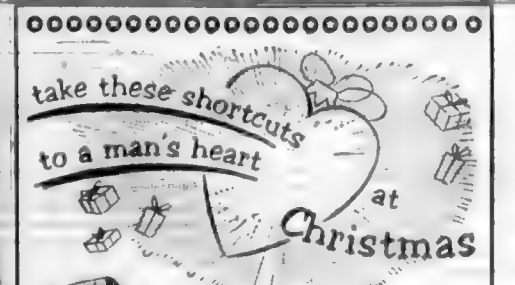 take these shortcuts
to a man's heart
at
Christmas